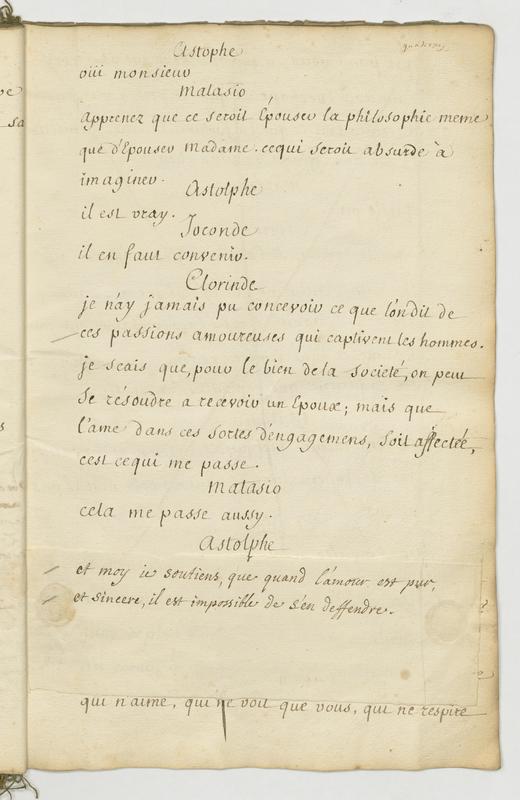 Astophe
oüi monsieur
malasio
apprenez que ce seroit Epouser la philosophie meme
que d'Epouser madame. cequi seroit absurde à
imaginer.
Astolphe
il est vray.
Joconde
il en faut convenir.
Clorinde
je n'ay jamais pu concevoir ce que l'on dit de
ces passions amoureuses qui captivent les hommes.
je scais que, pour le bien de la societé, on peut
se résoudre a recevoir un Epoux; mais que
l'ame dans ces sortes d'engagemens, soit affectée,
cest cequi me passe.
malasio
cela me passe aussy.
Astolphe
et moy ie soutiens, que quand l'amour est pur,
et sincere, il est impossible de s'en deffendre.
qui n'aime, qui ne voit que vous, qui ne respire